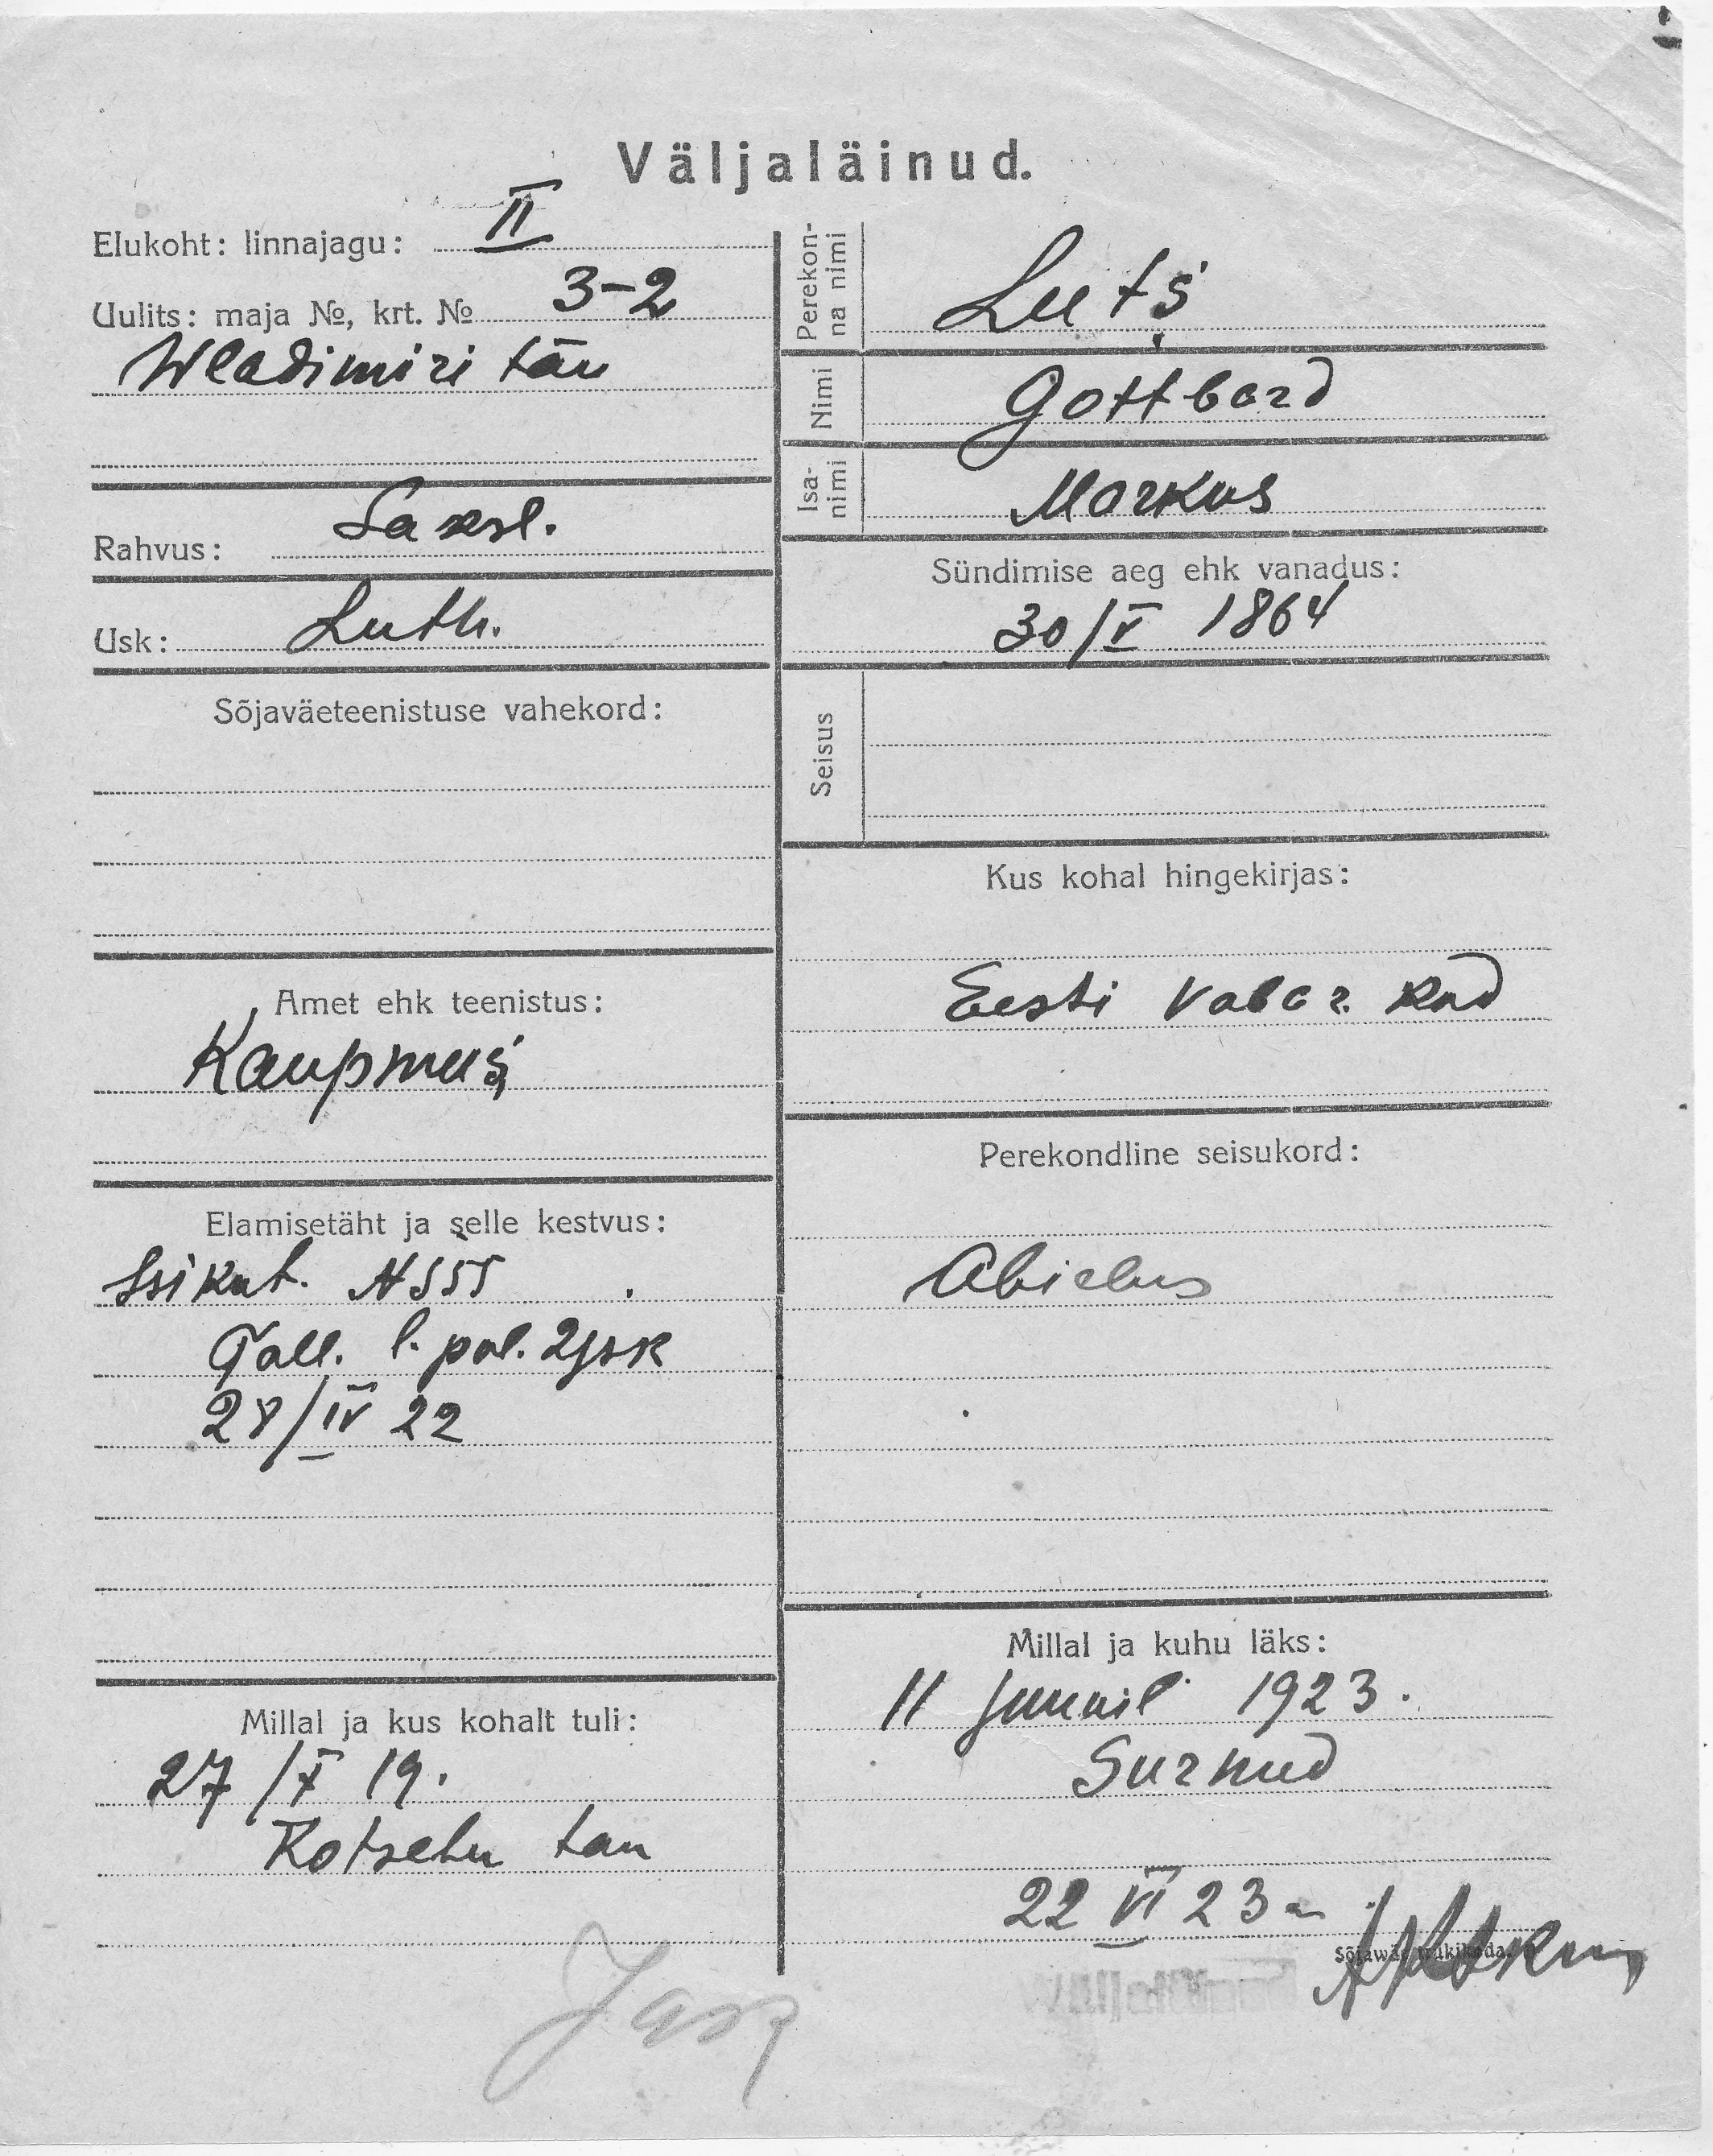 Väljaläinud.
Elukoht: linnajagu: II
Uulits: maja №, krt. № 3-2
Wladimiri tän
Rahvus: Saksl.
Usk: Luth.
Sõjaväeteenistuse vahekord:
Amet ehk teenistus:
Kaupmeš
Elamisetäht ja selle kestvus:
Isikut. N 555
Tall. l. pol. 2 jsk
28/IV 22
Millal ja kus kohalt tuli:
27/X 19.
Kotsebu tan
Perekonna nimi Luts
Nimi Gotthard
Isanimi Markus
Sündimise aeg ehk vanadus:
30/V 1864
Seisus
Kus kohal hingekirjas:
Eesti vabar. kod
Perekondline seisukord:
Abielus
Millal ja kuhu läks:
11 juunil 1923.
Surnud
22 VI 23 a
Sõjawäe trükikoda.